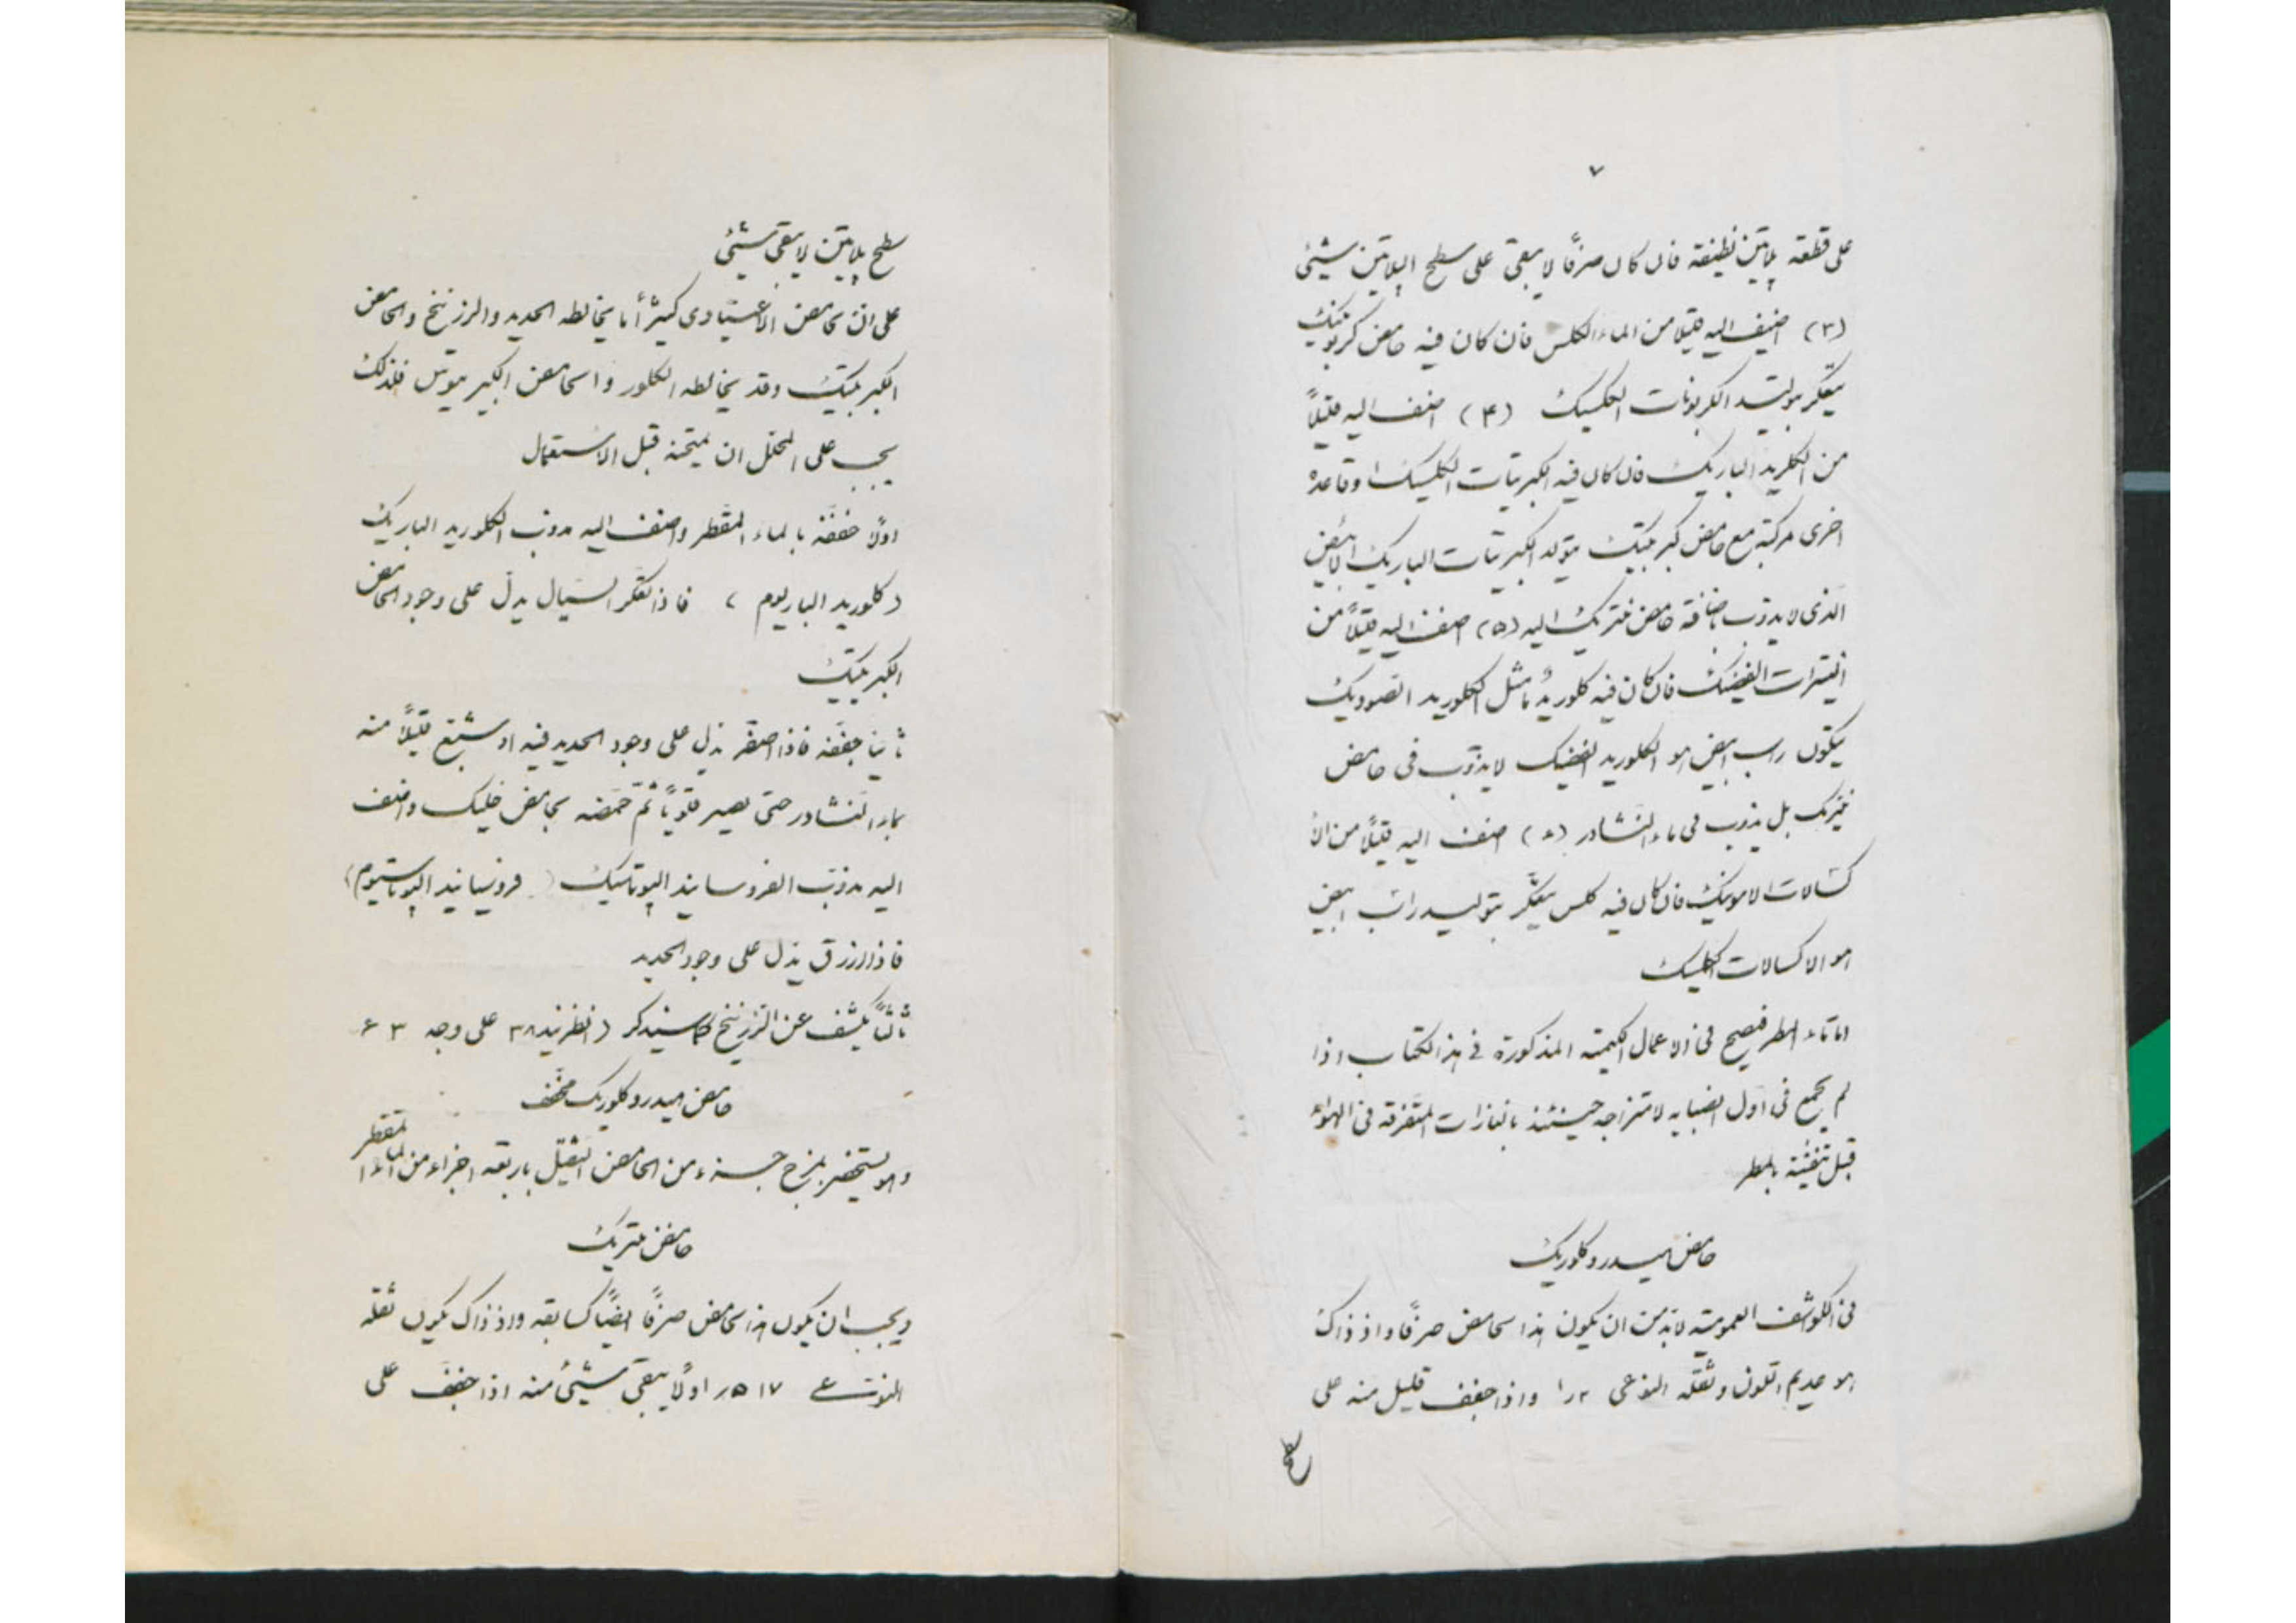 ٧
على قطعه پلاتين نظيفه فان كان صرفًا لا يبقى على سطح الپلاتين شيئى
(٣) اضيف اليه قليلا من الماء الكلس فان كان فيه حامض كربونيك
يتعكر بوليد الكربونات الكلسيك (۴) اضف اليه قليلاً
من الكلريد الباريك فان كان فيه الكبريتات الكلسيك او قاعدة
اخرى مركبة مع حامض كبريتيك يتولد الكبريتات الباريك الابيض
الذى لا يذوب باضافة حامض نتريك اليه (۵) اضف اليه قليلاً من
النيترات الفضيك فان كان فيه كلوريدٌ ما مثل الكلوريد الصوديك
يتكون راسب ابيض هو الكلوريد الفضيك لا يذوب فى حامض
نيتريك بل يذوب فى ماء النشادر اضف اليه قليلاً من الا
كسالات الامونيك فان كان فيه كلس يتعكّر بتوليد راسب ابيض
هو الاكسالات الكلسيك
اما ماء المطر فيصح فى الاعمال الكيمية المذكورة فى هذا الكتاب اذا
لم يجمع فى اول انصبابه لامتزاجه حينئذ بالغازات المتفرقه فى الهواء
قبل بالمطر
حامض هيدروكلوريك
فى الكواشف العموميه لابد من ان يكون هذا الحامض صرفًا واذ ذاك
هو عديم اللون وثقله النوعى ١ر٢ واذا جفف قليل منه على
سطح
سطح پلاتين لا يبقى شيئى
على ان حامض الاعتيادى كثيرًا ما يخالطه الحديد والزرنيخ والحامض
الكبريتيك وقد يخالطه الكلور والحامض الكبريتوس فلذلك
يجب على المحلل ان يمتحنه قبل الاستعمال
اولًا خففه بالماء المقطر واضف اليه مذوب الكلوريد الباريك
(كلوريد الباريوم) فاذا تعكر السيال يدل على وجود الحامض
الكبريتيك
ثانيا جففه فاذا اصفر يدل على وجود الحديد فيه او شبع قليلاً منه
بماء النشادر حتى يصير قلويًا ثم حمضه بحامض خليك واضف
اليه مذوب الفروسيانيد البوتاسيك (فروسيانيد البوتاسيوم)
فاذا ازرق يدل على وجود الحديد
ثالثًا يكشف عن الزرنيخ كما سيذكر (انظر ٣٨ على وجه ٦٣
حامض هيدروكلوريك مخفف
وهو يستحضر بمزج جزء من الحامض الثقيل باربعه اجزاء من الماء المقطر
حامض نتريك
ويجب ان يكون هذا الحامض صرفًا ايضًا كسابقه واذ ذاك يكون ثقله
النوعى ١٧ ۵ر ١ ولا يبقى شيئى منه اذا جفف على